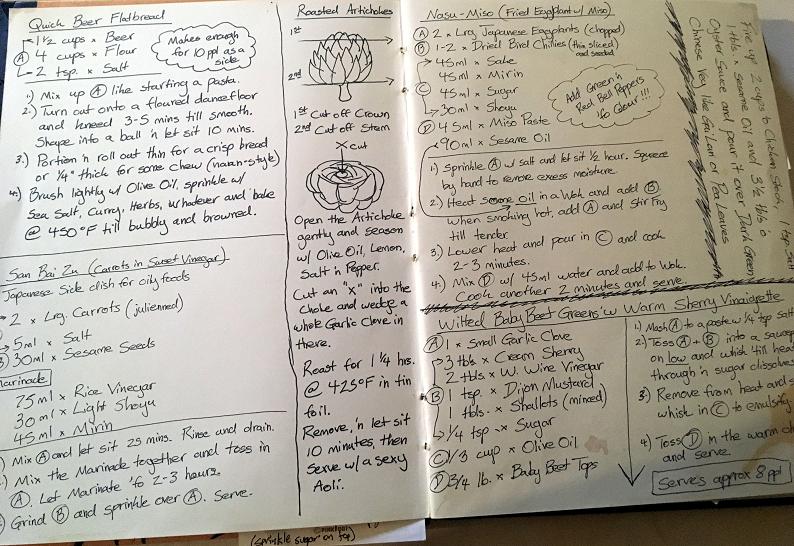 Quick Beer Flatbread
1 1/2 cups x Beer
Ⓐ 4 cups x Flour
2 tsp. x Salt
Makes enough
for 10 ppl as a
side
1.) Mix up Ⓐ like starting a pasta.
2.) Turn out onto a floured dancefloor
and kneed 3-5 mins till smooth.
Shape into a ball 'n let sit 10 mins.
3.) Portion 'n roll out thin for a crisp bread
or 1/4" thick for some chew (naan-style)
4.) Brush lightly w/ Olive Oil, sprinkle w/
Sea Salt, Curry, Herbs, whatever and bake
@ 450°F till bubbly and browned.
San Bai Zu (Carrots in Sweet Vinegar)
Japanese Side dish for oily foods
2 x Lrg. Carrots (julienned)
5ml x Salt
30ml x Sesame Seeds
Marinade
75ml x Rice Vinegar
30ml x Light Shoyu
45ml x Mirin
Mix Ⓐ and let sit 25 mins. Rinse and drain.
Mix the Marinade together and toss in
Ⓐ. Let Marinate 'fo 2-3 hours.
Grind Ⓑ and sprinkle over Ⓐ. Serve.
Roasted Artichokes
1st
2nd
1st Cut off Crown
2nd Cut off Stem
x cut
Open the Artichoke
gently and season
w/ Olive Oil, Lemon,
Salt 'n Pepper.
Cut an "x" into the
choke and wedge a
whole Garlic Clove in
there.
Roast for 1 1/4 hrs.
@ 425°F in tin
foil.
Remove, 'n let sit
10 minutes, then
serve w/ a sexy
Aoli.
(sprinkle sugar on top)
Nasu-Miso (Fried Eggplant w/ Miso)
Ⓐ 2 x Lrg Japanese Eggplants (chopped)
Ⓑ 1-2 x Dried Bird Chilies (thin sliced
and seeded)
45ml x Sake
45ml x Mirin
Ⓒ 45ml x Sugar
30ml x Shoyu
Ⓓ 45ml x Miso Paste
90ml x Sesame Oil
Add Green 'n
Red Bell Peppers
'fo Colour!!!
1.) Sprinkle Ⓐ w/ salt and let sit 1/2 hour. Squeeze
by hand to remove excess moisture.
2.) Heat some Oil in a Wok and add Ⓑ.
when smoking hot, add Ⓐ and stir Fry
till tender
3.) Lower heat and pour in Ⓒ and cook
2-3 minutes.
4.) Mix Ⓓ w/ 45ml water and add to Wok.
Cook another 2 minutes and serve.
Fire up 2 cups to Chicken Stock, 1 tsp Salt
1 tbls. x Sesame Oil and 3 1/2 tbls o'
Oyster Sauce and pour it over Dark Green
Chinese Veg like Gai Lan or Pea Leaves
Wilted Baby Beet Greens 'w Warm Sherry Vinaigrette
Ⓐ 1 x small Garlic Clove
3 tbls x Cream Sherry
2 tbls x W. Wine Vinegar
Ⓑ 1 tsp. x Dijon Mustard
1 tbls. x Shallots (minced)
1/4 tsp x Sugar
Ⓒ 1/3 cup x Olive Oil
Ⓓ 3/4 lb. x Baby Beet Tops
1) Mash Ⓐ to a paste w/ 1/4 tsp salt
2) Toss Ⓐ + Ⓑ into a
on low and whisk till
through 'n sugar
3) Remove from heat and
whisk in Ⓒ to emulsify
4) Toss Ⓓ in the warm
and serve
Serves approx 8 ppl